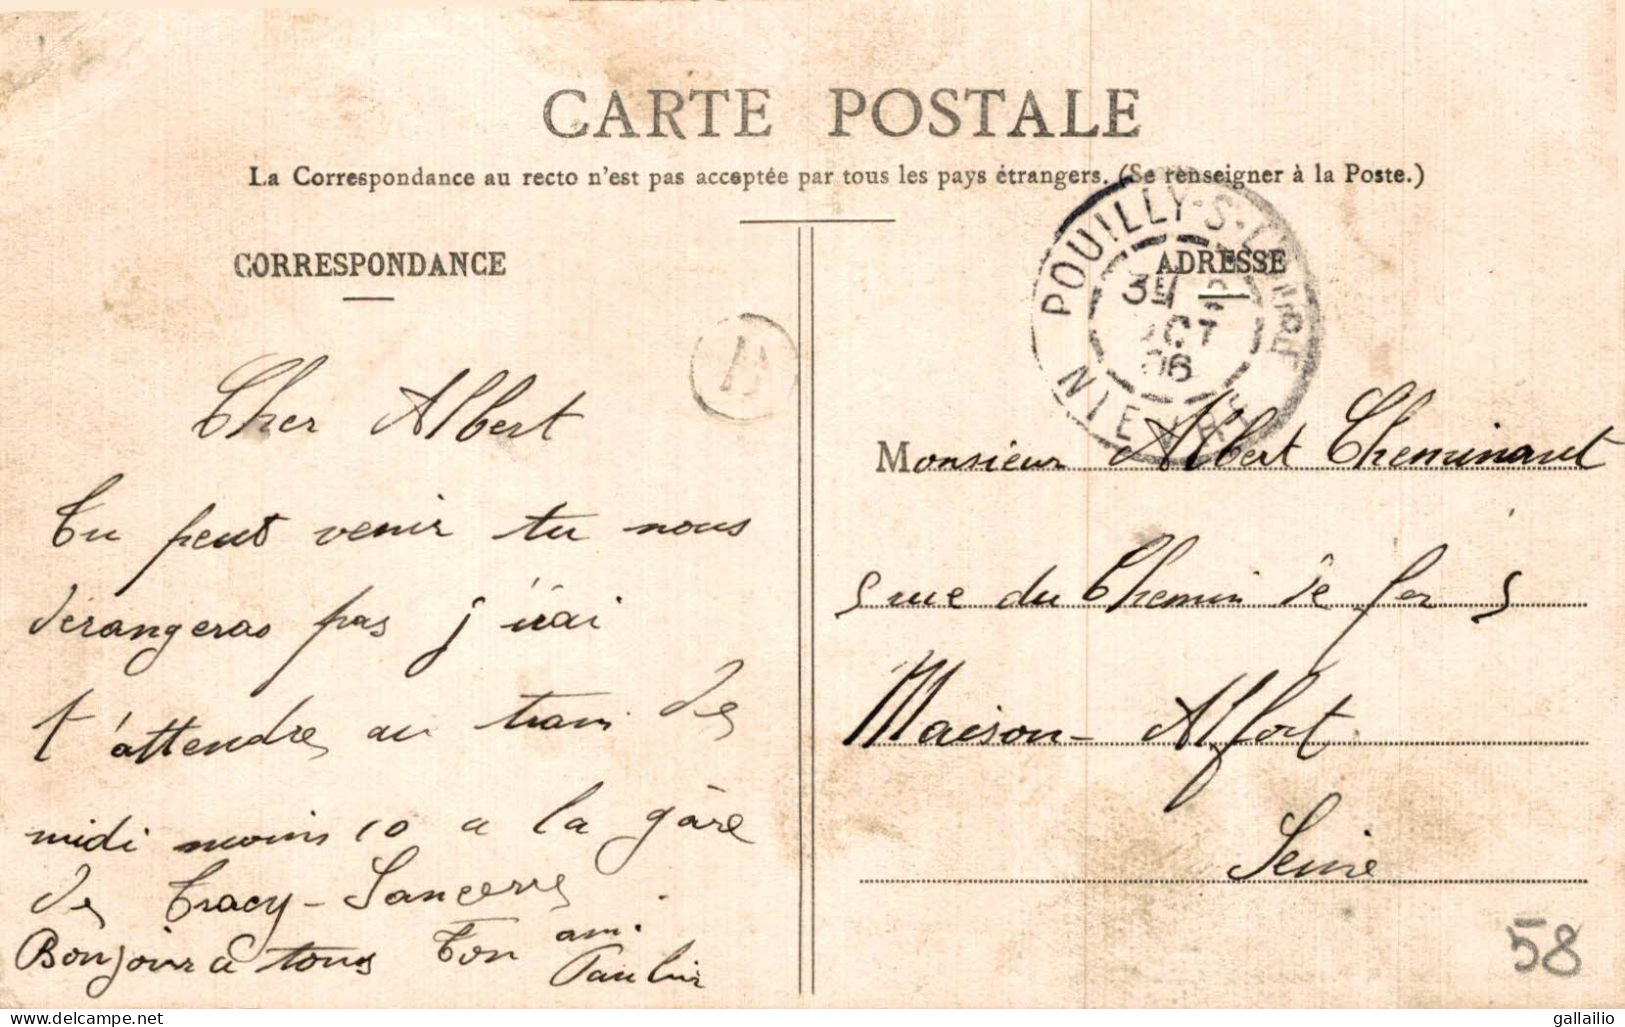 CARTE POSTALE
La Correspondance au recto n'est pas acceptée par tous les pays étrangers. (Se renseigner à la Poste.)
CORRESPONDANCE
Cher Albert
Tu peut venir tu nous
derangeras pas j'irai
t'attendre au train de
midi moins 10 a la gâre
de Tracy-Sancerre
Bonjour a tous Ton ami
Paulin
ADRESSE
POUILLY-S-LOIRE
3E
OCT
06
NIEVRE
Monsieur Albert Cheminant
5 rue du Chemin de fer 5
Maison-Alfort
Seine
58
delcampe.net
gallailio